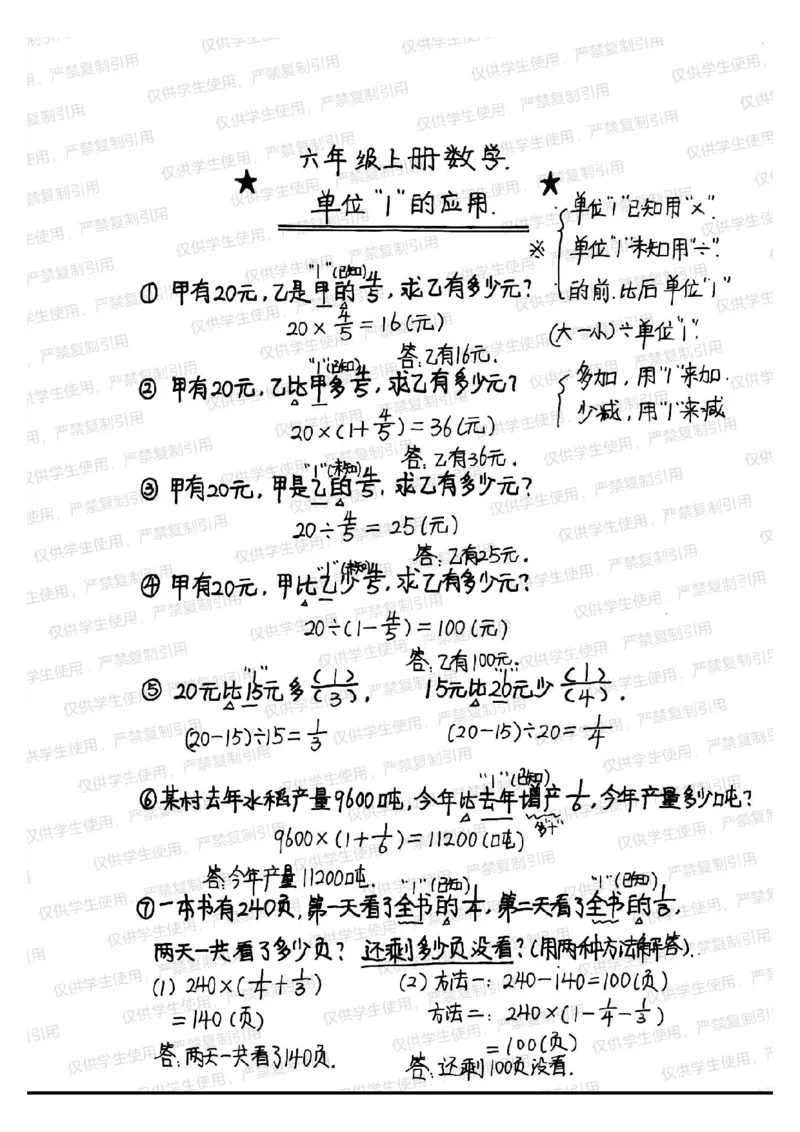 六年级上册数学.
★ 单位"1"的应用. ★
※ 单位"1"已知用"×".
单位"1"未知用"÷".
的前.比后单位"1"
(大-小)÷单位"1".
多加,用"1"来加.
少减,用"1"来减
"1"(已知)
① 甲有20元,乙是甲的4/5,求乙有多少元?
20×4/5=16(元)
答:乙有16元.
"1"(已知)
② 甲有20元,乙比甲多4/5,求乙有多少元?
20×(1+4/5)=36(元)
答:乙有36元.
"1"(未知)
③ 甲有20元,甲是乙的4/5,求乙有多少元?
20÷4/5=25(元)
答:乙有25元.
"1"(未知)
④ 甲有20元,甲比乙少4/5,求乙有多少元?
20÷(1-4/5)=100(元)
答:乙有100元.
"1"
⑤ 20元比15元多(1)/(3), 15元比20元少(1)/(4).
(20-15)÷15=1/3 (20-15)÷20=1/4
"1"(已知)
⑥某村去年水稻产量9600吨,今年比去年增产1/6,今年产量多少吨?
"多+"
9600×(1+1/6)=11200(吨)
答:今年产量11200吨.
"1"(已知) "1"(已知)
⑦一本书有240页,第一天看了全书的1/4,第二天看了全书的1/3,
两天一共看了多少页?还剩多少页没看?(用两种方法解答).
(1) 240×(1/4+1/3) (2)方法一:240-140=100(页)
=140(页) 方法二:240×(1-1/4-1/3)
=100(页)
答:两天一共看了140页. 答:还剩100页没看.
仅供学生使用,严禁复制引用